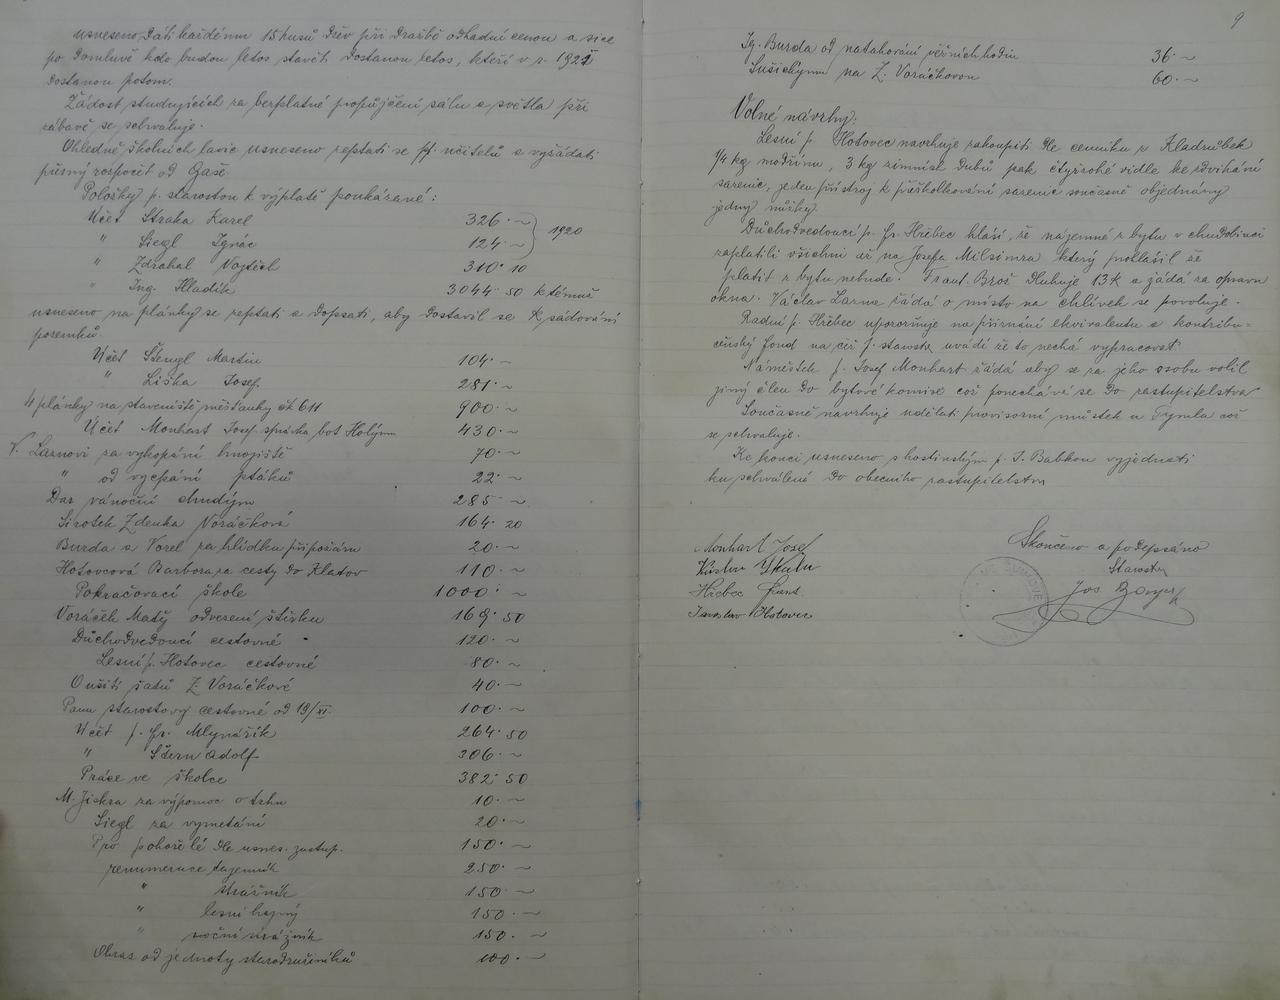 usneseno dáti každému 15 kusů dřev při dražbě odhadní cenou a sice
po domluvě kdo budou letos stavěti dostanou letos, kteří v r. 1921
dostanou potom.
Žádost studujících za bezplatné propůjčení sálu a světla při
zábavě se schvaluje.
Ohledně školních lavic usneseno zeptati se pp. učitelů a vyžádati
písný rozpočet od Gaše.
Položky p. starostou k výplatě poukázané:
Účet Straka Karel 326·~
" Siegl Ignác 124·~ 1920
" Zdrahal Vojtěch 310·10
" Ing. Hladík 3044·50 k témuž
usneseno na plánky se zeptati a dopsati, aby dostavil se k sádování
pozemků
Účet Štengl Martin 104·~
" Liška Josef. 281·~
4 plánky na staveniště měšťanky čk 611 900·~
Účet Monhart Josef správka bot Holým 430·~
V. Laznovi za vykopání hnojiště 70·~
" od vycpání ptáků 22·~
Dar vánoční chudým 285·~
Sirotek Zdenka Voráčková 164·20
Burda a Vorel za hlídku při požáru 20·~
Hotovcová Barbora za cesty do Klatov 110·~
Pokračovací škole 1000·~
Voráček Matěj odvezení štěrku 169·50
Důchodvedoucí cestovné 120·~
Lesní p. Hotovec cestovné 80·~
O ušití šatů Z. Voráčkové 40·~
Panu starostovy cestovné od 19/XI. 100·~
Účet p. Fr. Mlynářík 264·50
" Štern Adolf 306·~
Práce ve školce 382·50
M. Jiskra za výpomoc o trhu 10·~
Siegl za vymetání 20·~
Pro pohořelé dle usnes. zastup. 150·~
renumerace tajemník 250·~
" strážník 150·~
" lesní hajný 150·~
" noční strážník 150·~
Obraz od jednoty starodružiníků 100·~
9
Ig. Burda od natahování věžních hodin 36·~
Sušickýmu na Z. Voráčkovou 60·~
Volné návrhy:
Lesní p. Hotovec navrhuje zakoupiti dle cenníku z Kladrubek
1/4 kg modřínu, 3 kg zimních dubů pak čtyřrohé vidle ke zdvihání
sazenic, jeden přístroj k přeškolkování sazenic současně objednány
jedny nůžky.
Důchodvedoucí p. Fr. Hřebec hlásí, že nájemné z bytu v chudobinci
zaplatili všichni až na Josefa Milsimra který prohlásil že
platit z bytu nebude. Frant. Brož dluhuje 13 K a žádá za opravu
okna. Václav Lazna žádá o místo na chlívek se povoluje.
Radní p. Hřebec upozorňuje na přiznání ekvivalentu a kontribu=
čenský fond na což p. starosta uvádí že to nechá vypracovat.
Náměstek p. Josef Monhart žádá aby se za jeho osobu volil
jiný člen do bytové komise což ponechává se do zastupitelstva
Současně navrhuje udělati provisorní můstek u Tymla což
se schvaluje.
Ke konci usneseno s hostinským p. J. Babkou vyjednati
ku schválené do obecního zastupitelstva
Skončeno a podepsáno
Starosta
Monhart Josef
Hřebec Frant.
Jaroslav Hotovec
Jos